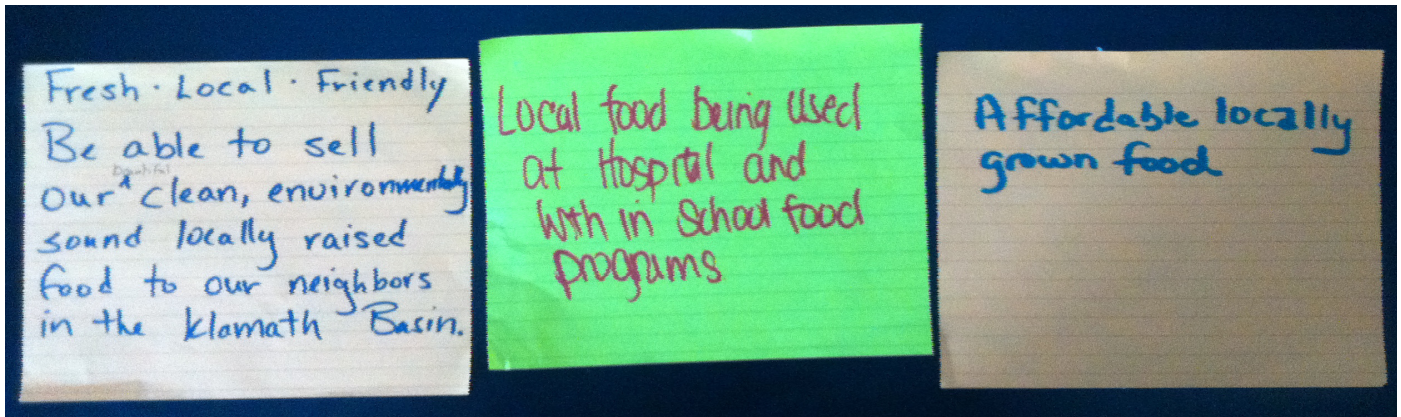 Fresh · Local · Friendly
Be able to sell
our beautiful clean, environmentally
sound locally raised
food to our neighbors
in the Klamath Basin.
Local food being used
at Hospital and
With in School food
programs
Affordable locally
grown food